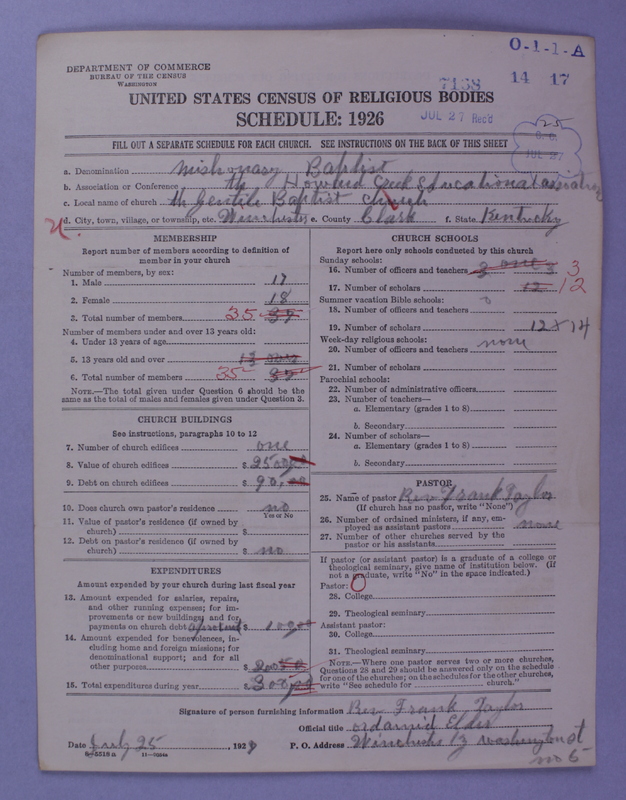 O-1-1-A
DEPARTMENT OF COMMERCE
BUREAU OF THE CENSUS
WASHINGTON
7158 14 17
UNITED STATES CENSUS OF RELIGIOUS BODIES
SCHEDULE: 1926
JUL 27 Rec'd
25
JUL 27
FILL OUT A SEPARATE SCHEDULE FOR EACH CHURCH. SEE INSTRUCTIONS ON THE BACK OF THIS SHEET
a. Denomination Missionary Baptist
b. Association or Conference the Howard Creek Educational
c. Local name of church th Gentile Baptist church
d. City, town, village, or township, etc. Winchester e. County Clark f. State Kentucky
MEMBERSHIP
Report number of members according to definition of
member in your church
Number of members, by sex:
1. Male 17
2. Female 18
3. Total number of members 35
Number of members under and over 13 years old:
4. Under 13 years of age
5. 13 years old and over 13
6. Total number of members 35 35
NOTE.—The total given under Question 6 should be the
same as the total of males and females given under Question 3.
CHURCH BUILDINGS
See instructions, paragraphs 10 to 12
7. Number of church edifices one
8. Value of church edifices $ 2500
9. Debt on church edifices $ 90.00
10. Does church own pastor's residence no
Yes or No
11. Value of pastor's residence (if owned by
church) $
12. Debt on pastor's residence (if owned by
church) $ no
EXPENDITURES
Amount expended by your church during last fiscal year
13. Amount expended for salaries, repairs,
and other running expenses; for im-
provements or new buildings; and for
payments on church debt $ 100
14. Amount expended for benevolences, in-
cluding home and foreign missions; for
denominational support; and for all
other purposes $ 200
15. Total expenditures during year $ 300
CHURCH SCHOOLS
Report here only schools conducted by this church
Sunday schools:
16. Number of officers and teachers 3 one 3 3
17. Number of scholars 12 12
Summer vacation Bible schools: 0
18. Number of officers and teachers
19. Number of scholars 12 x 14
Week-day religious schools:
20. Number of officers and teachers none
21. Number of scholars
Parochial schools:
22. Number of administrative officers
23. Number of teachers—
a. Elementary (grades 1 to 8)
b. Secondary
24. Number of scholars—
a. Elementary (grades 1 to 8)
b. Secondary
PASTOR
25. Name of pastor Rev Frank Taylor
(If church has no pastor, write "None")
26. Number of ordained ministers, if any, em-
ployed as assistant pastors none
27. Number of other churches served by the
pastor or his assistants
If pastor (or assistant pastor) is a graduate of a college or
theological seminary, give name of institution below. (If
not a graduate, write "No" in the space indicated.)
Pastor: O
28. College
29. Theological seminary
Assistant pastor:
30. College
31. Theological seminary
NOTE.—Where one pastor serves two or more churches,
Questions 28 and 29 should be answered only on the schedule
for one of the churches; on the schedules for the other churches,
write "See schedule for church."
Signature of person furnishing information Rev Frank Taylor
Official title ordained Elder
Date July 25, 192 P. O. Address Winchester Washington st
no 5
8—5518 a